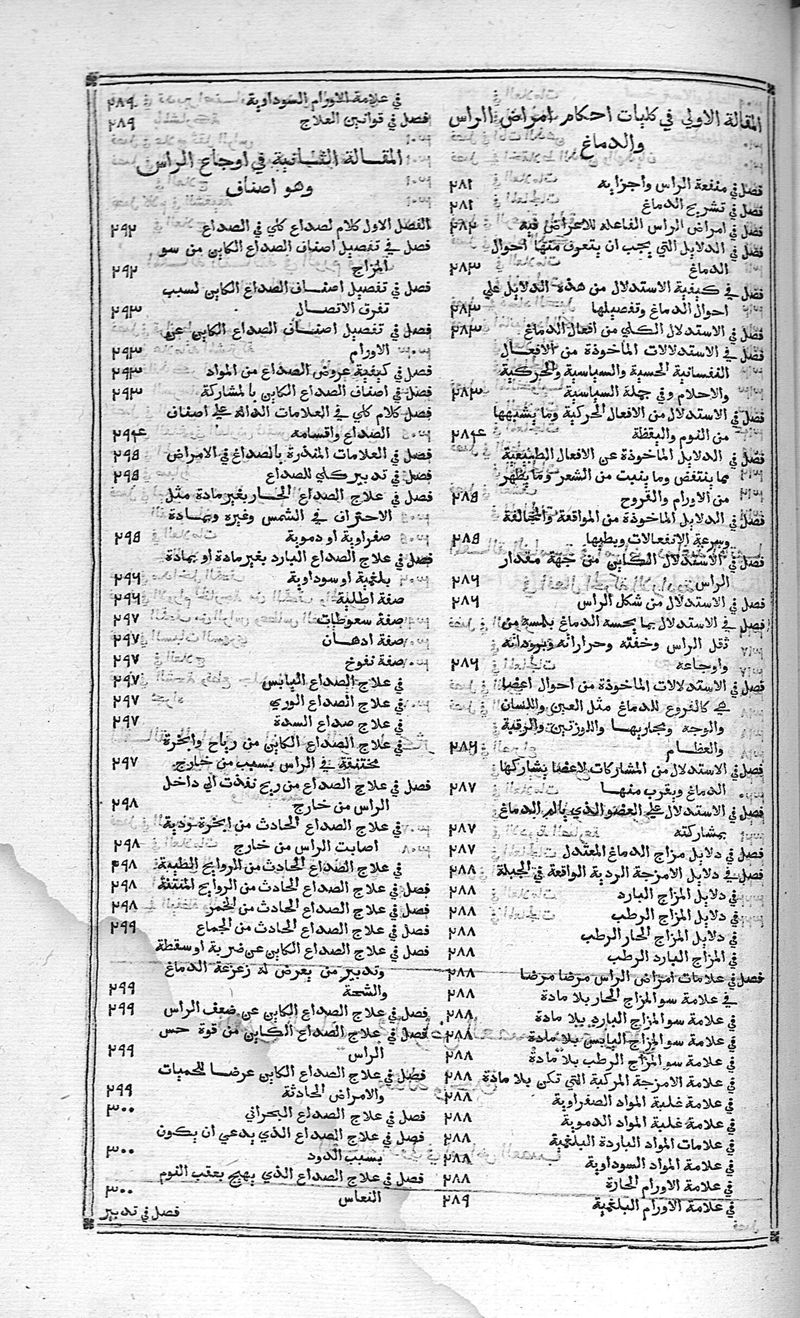 المقالة الاولي في كليات احكام امراض الراس
والدماغ
فصل في منفعة الراس واجزايه ٢٨١
فصل في تشريح الدماغ ٢٨١
فصل في امراض الراس الفاعله للاعراض فيه ٢٨٢
فصل في الدلايل التي يجب ان يتعرف منها احوال
الدماغ ٢٨٣
فصل في كيفية الاستدلال من هذه الدلايل علي
احوال الدماغ وتفصيلها ٢٨٣
فصل في الاستدلال الكلي من افعال الدماغ ٢٨٣
فصل في الاستدلالات الماخوذة من الافعال
النفسانية الحسية والسياسية والحركية
والاحلام وفي جملة السياسية ٢٨٣
فصل في الاستدلال من الافعال الحركية وما يشبهها
من النوم واليقظة ٢٨٤
فصل في الدلايل الماخوذة عن الافعال الطبيعية
مما ينتفض وما ينبت من الشعر وما يظهر
من الاورام والقروح ٢٨٥
فصل في الدلايل الماخوذة من الموافقة والمخالفة
وسرعة الانفعالات وبطيها ٢٨٥
فصل في الاستدلال الكاين من جهة مقدار
الراس ٢٨٦
فصل في الاستدلال من شكل الراس ٢٨٦
فصل في الاستدلال بما يحسه الدماغ بلمسه من
ثقل الراس وخفته وحرارته وبرودته
واوجاعه ٢٨٦
فصل في الاستدلالات الماخوذة من احوال اعضا
هي كالفروع للدماغ مثل العين واللسان
والوجه ومجاريها واللوزتين والرقبة
والعظام ٢٨٦
فصل في الاستدلال من المشاركات لاعضا يشاركها
الدماغ ويقرب منها ٢٨٧
فصل في الاستدلال علي العضو الذي يالم الدماغ
بمشاركته ٢٨٧
فصل في دلايل مزاج الدماغ المعتدل ٢٨٧
فصل في دلايل الامزجة الردية الواقعة في الجبلة ٢٨٨
في دلايل المزاج البارد ٢٨٨
في دلايل المزاج الرطب ٢٨٨
في دلايل المزاج الحار الرطب ٢٨٨
في المزاج البارد الرطب ٢٨٨
فصل في علامات امراض الراس مرضا مرضا ٢٨٨
في علامة سو المزاج الحار بلا مادة ٢٨٨
في علامة سو المزاج البارد بلا مادة ٢٨٨
في علامة سو المزاج اليابس بلا مادة ٢٨٨
في علامة سو المزاج الرطب بلا مادة ٢٨٨
في علامة الامزجة المركبة التي تكن بلا مادة ٢٨٨
في علامة غلبة المواد الصفراوية ٢٨٨
في علامة غلبة المواد الدموية ٢٨٨
في علامات المواد الباردة البلغمية ٢٨٨
في علامة المواد السوداوية ٢٨٨
في علامة الاورام الحارة ٢٨٨
في علامة الاورام البلغمية ٢٨٩
في علامة الاورام السوداوية ٢٨٩
فصل في قوانين العلاج ٢٨٩
المقالة الثانية في اوجاع الراس
وهو اصناف
الفصل الاول كلام لصداع كلي في الصداع ٢٩٢
فصل في تفصيل اصناف الصداع الكاين من سو
المزاج ٢٩٢
فصل في تفصيل اصناف الصداع الكاين لسبب
تفرق الاتصال ٢٩٣
فصل في تفصيل اصناف الصداع الكاين عن
الاورام ٢٩٣
فصل في كيفية عروض الصداع من المواد ٢٩٣
فصل في اصناف الصداع الكاين بالمشاركة ٢٩٣
فصل كلام كلي في العلامات الدالة علي اصناف
الصداع واقسامه ٢٩٤
فصل في العلامات المنذرة بالصداع في الامراض ٢٩٥
فصل في تدبير كلي للصداع ٢٩٥
فصل في علاج الصداع الحار بغير مادة مثل
الاحتراق في الشمس وغيره وبمادة
صفراوية او دموية ٢٩٥
فصل في علاج الصداع البارد بغير مادة او بمادة
بلغمية او سوداوية ٢٩٦
صفة اطلية ٢٩٦
صفة سعوطات ٢٩٧
صفة ادهان ٢٩٧
صفة نفوخ ٢٩٧
في علاج الصداع اليابس ٢٩٧
في علاج الصداع الورمي ٢٩٧
في علاج صداع السدة ٢٩٧
في علاج الصداع الكاين من رياح وابخرة
محتقنة في الراس بسبب من خارج ٢٩٧
فصل في علاج الصداع من ريح نفذت الي داخل
الراس من خارج ٢٩٨
في علاج الصداع الحادث من ابخرة ردية
اصابت الراس من خارج ٢٩٨
في علاج الصداع الحادث من الروايح الطيبة ٢٩٨
فصل في علاج الصداع الحادث من الروايح المنتنة ٢٩٨
فصل في علاج الصداع الحادث من الخمر ٢٩٨
فصل في علاج الصداع الحادث من الجماع ٢٩٩
فصل في علاج الصداع الكاين عن ضربة او سقطة
وتدبير من يعرض له زعزعة الدماغ
والشجة ٢٩٩
فصل في علاج الصداع الكاين عن ضعف الراس ٢٩٩
فصل في علاج الصداع الكاين من قوة حس
الراس ٢٩٩
فصل في علاج الصداع الكاين عرضا للحميات
والامراض الحادثة ٢٩٩
فصل في علاج الصداع البحراني ٣٠٠
فصل في علاج الصداع الذي يدعي ان يكون
بسبب الدود ٣٠٠
فصل في علاج الصداع الذي يهيج بعقب النوم
النعاس ٣٠٠
فصل في تدبير